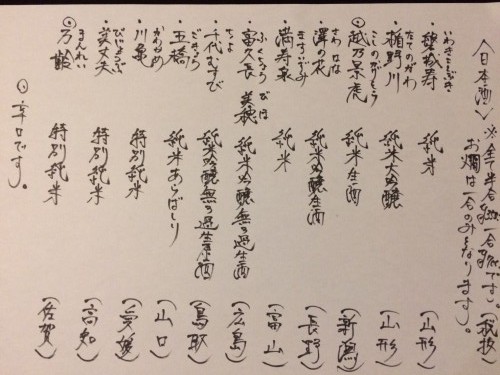 〈日本酒〉※全て半合 一合 です。(税抜)
お燗は一合のみとなります。
・磐城寿 純米 (山形)
いわきことぶき
・楯野川 純米大吟醸 (山形)
たてのがわ
◎越乃景虎 純米生酒 (新潟)
こしのかげとら
・澤の花 純米吟醸生酒 (長野)
さわ はな
・満寿泉 純米 (富山)
ますいずみ
・富久長 美穂 純米吟醸無ろ過生酒 (広島)
ふくちょう びほ
・千代むすび 純米吟醸無ろ過生酒 (鳥取)
ちよ
・五橋 純米あらばしり (山口)
ごきょう
・川亀 特別純米 (愛媛)
かわかめ
・美丈夫 特別純米 (高知)
びじょうふ
◎万齢 特別純米 (佐賀)
まんれい
◎辛口です。